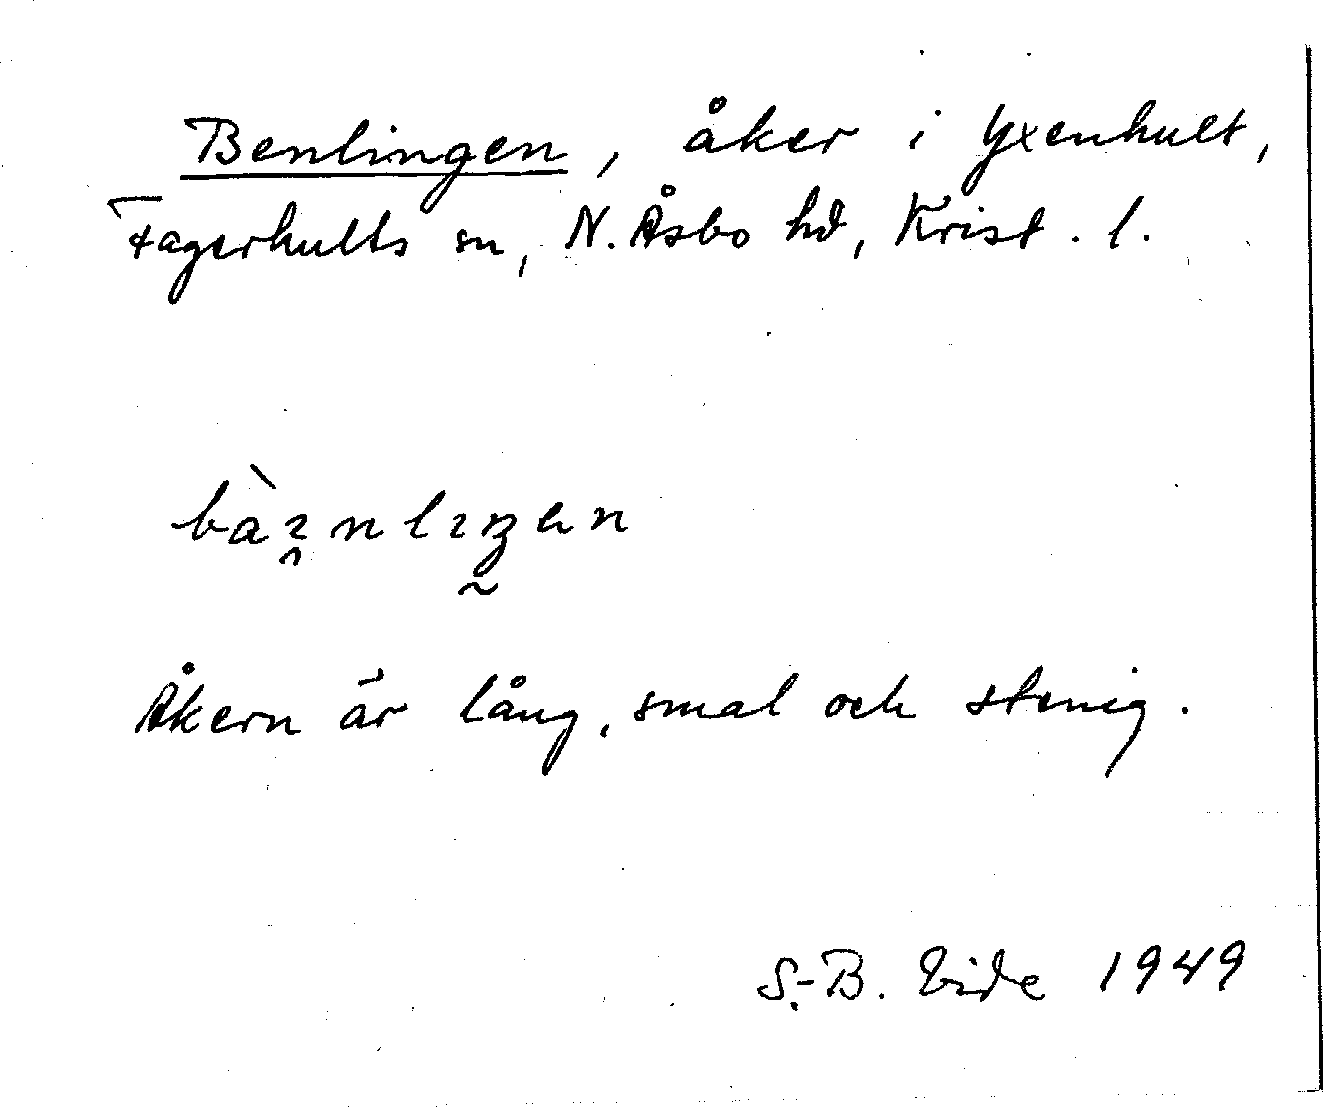 Benlingen, åker i Yxenhult,
Fagerhults sn, N. Åsbo hd, Krist. l.
Åkern är lång, smal och stenig.
S.-B. Vide 1949